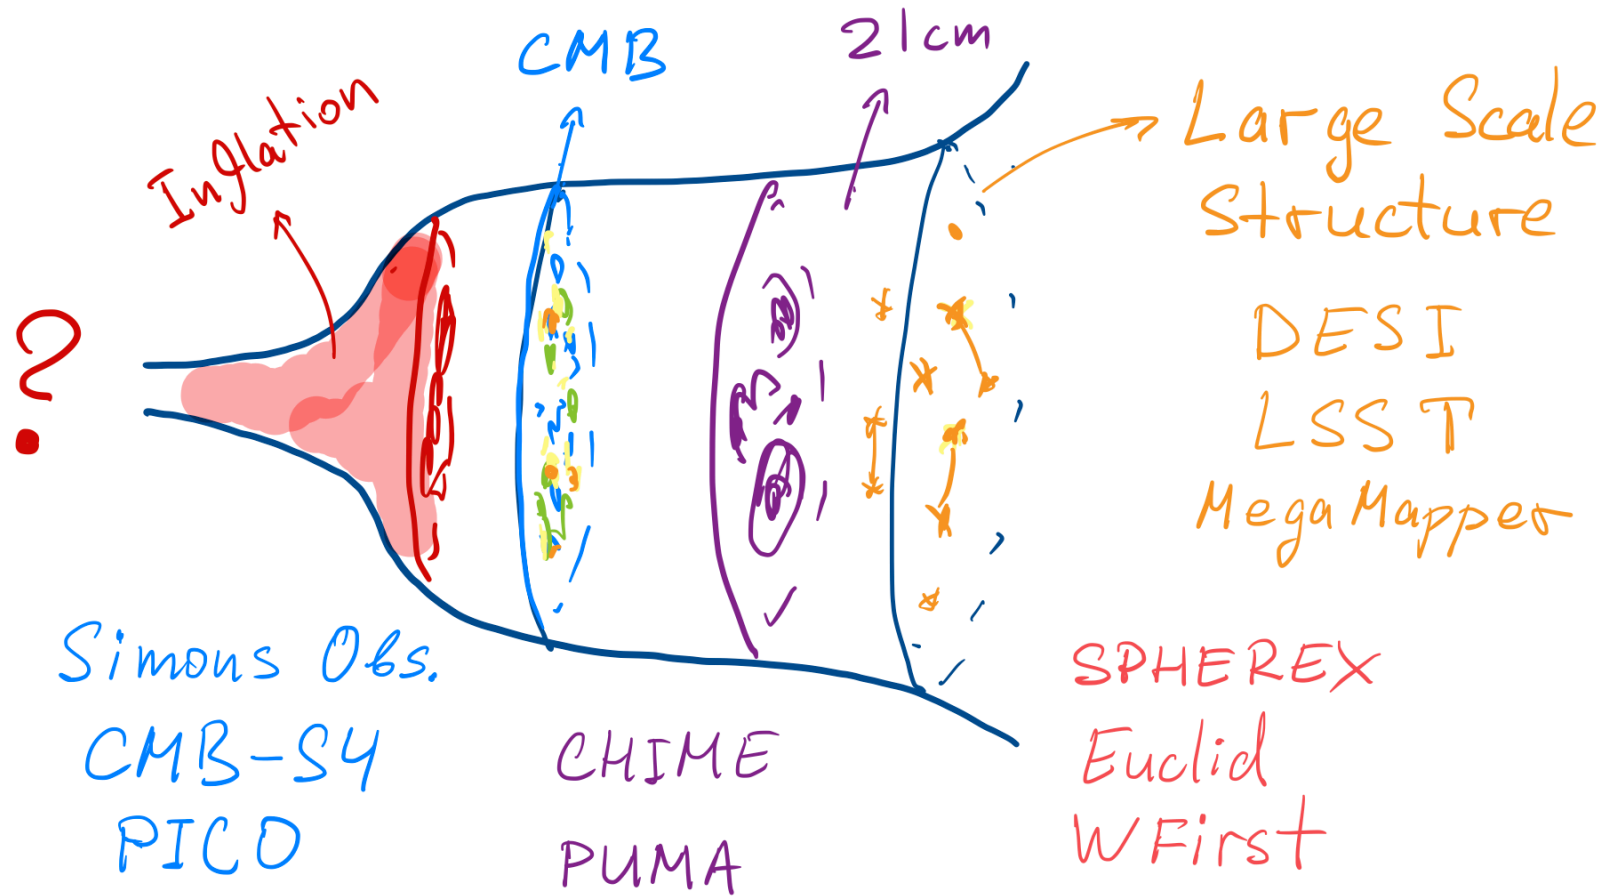 CMB
21cm
Inflation
Large Scale
Structure
?
DESI
LSST
MegaMapper
Simons Obs.
CMB-S4
PICO
CHIME
PUMA
SPHEREX
Euclid
WFirst